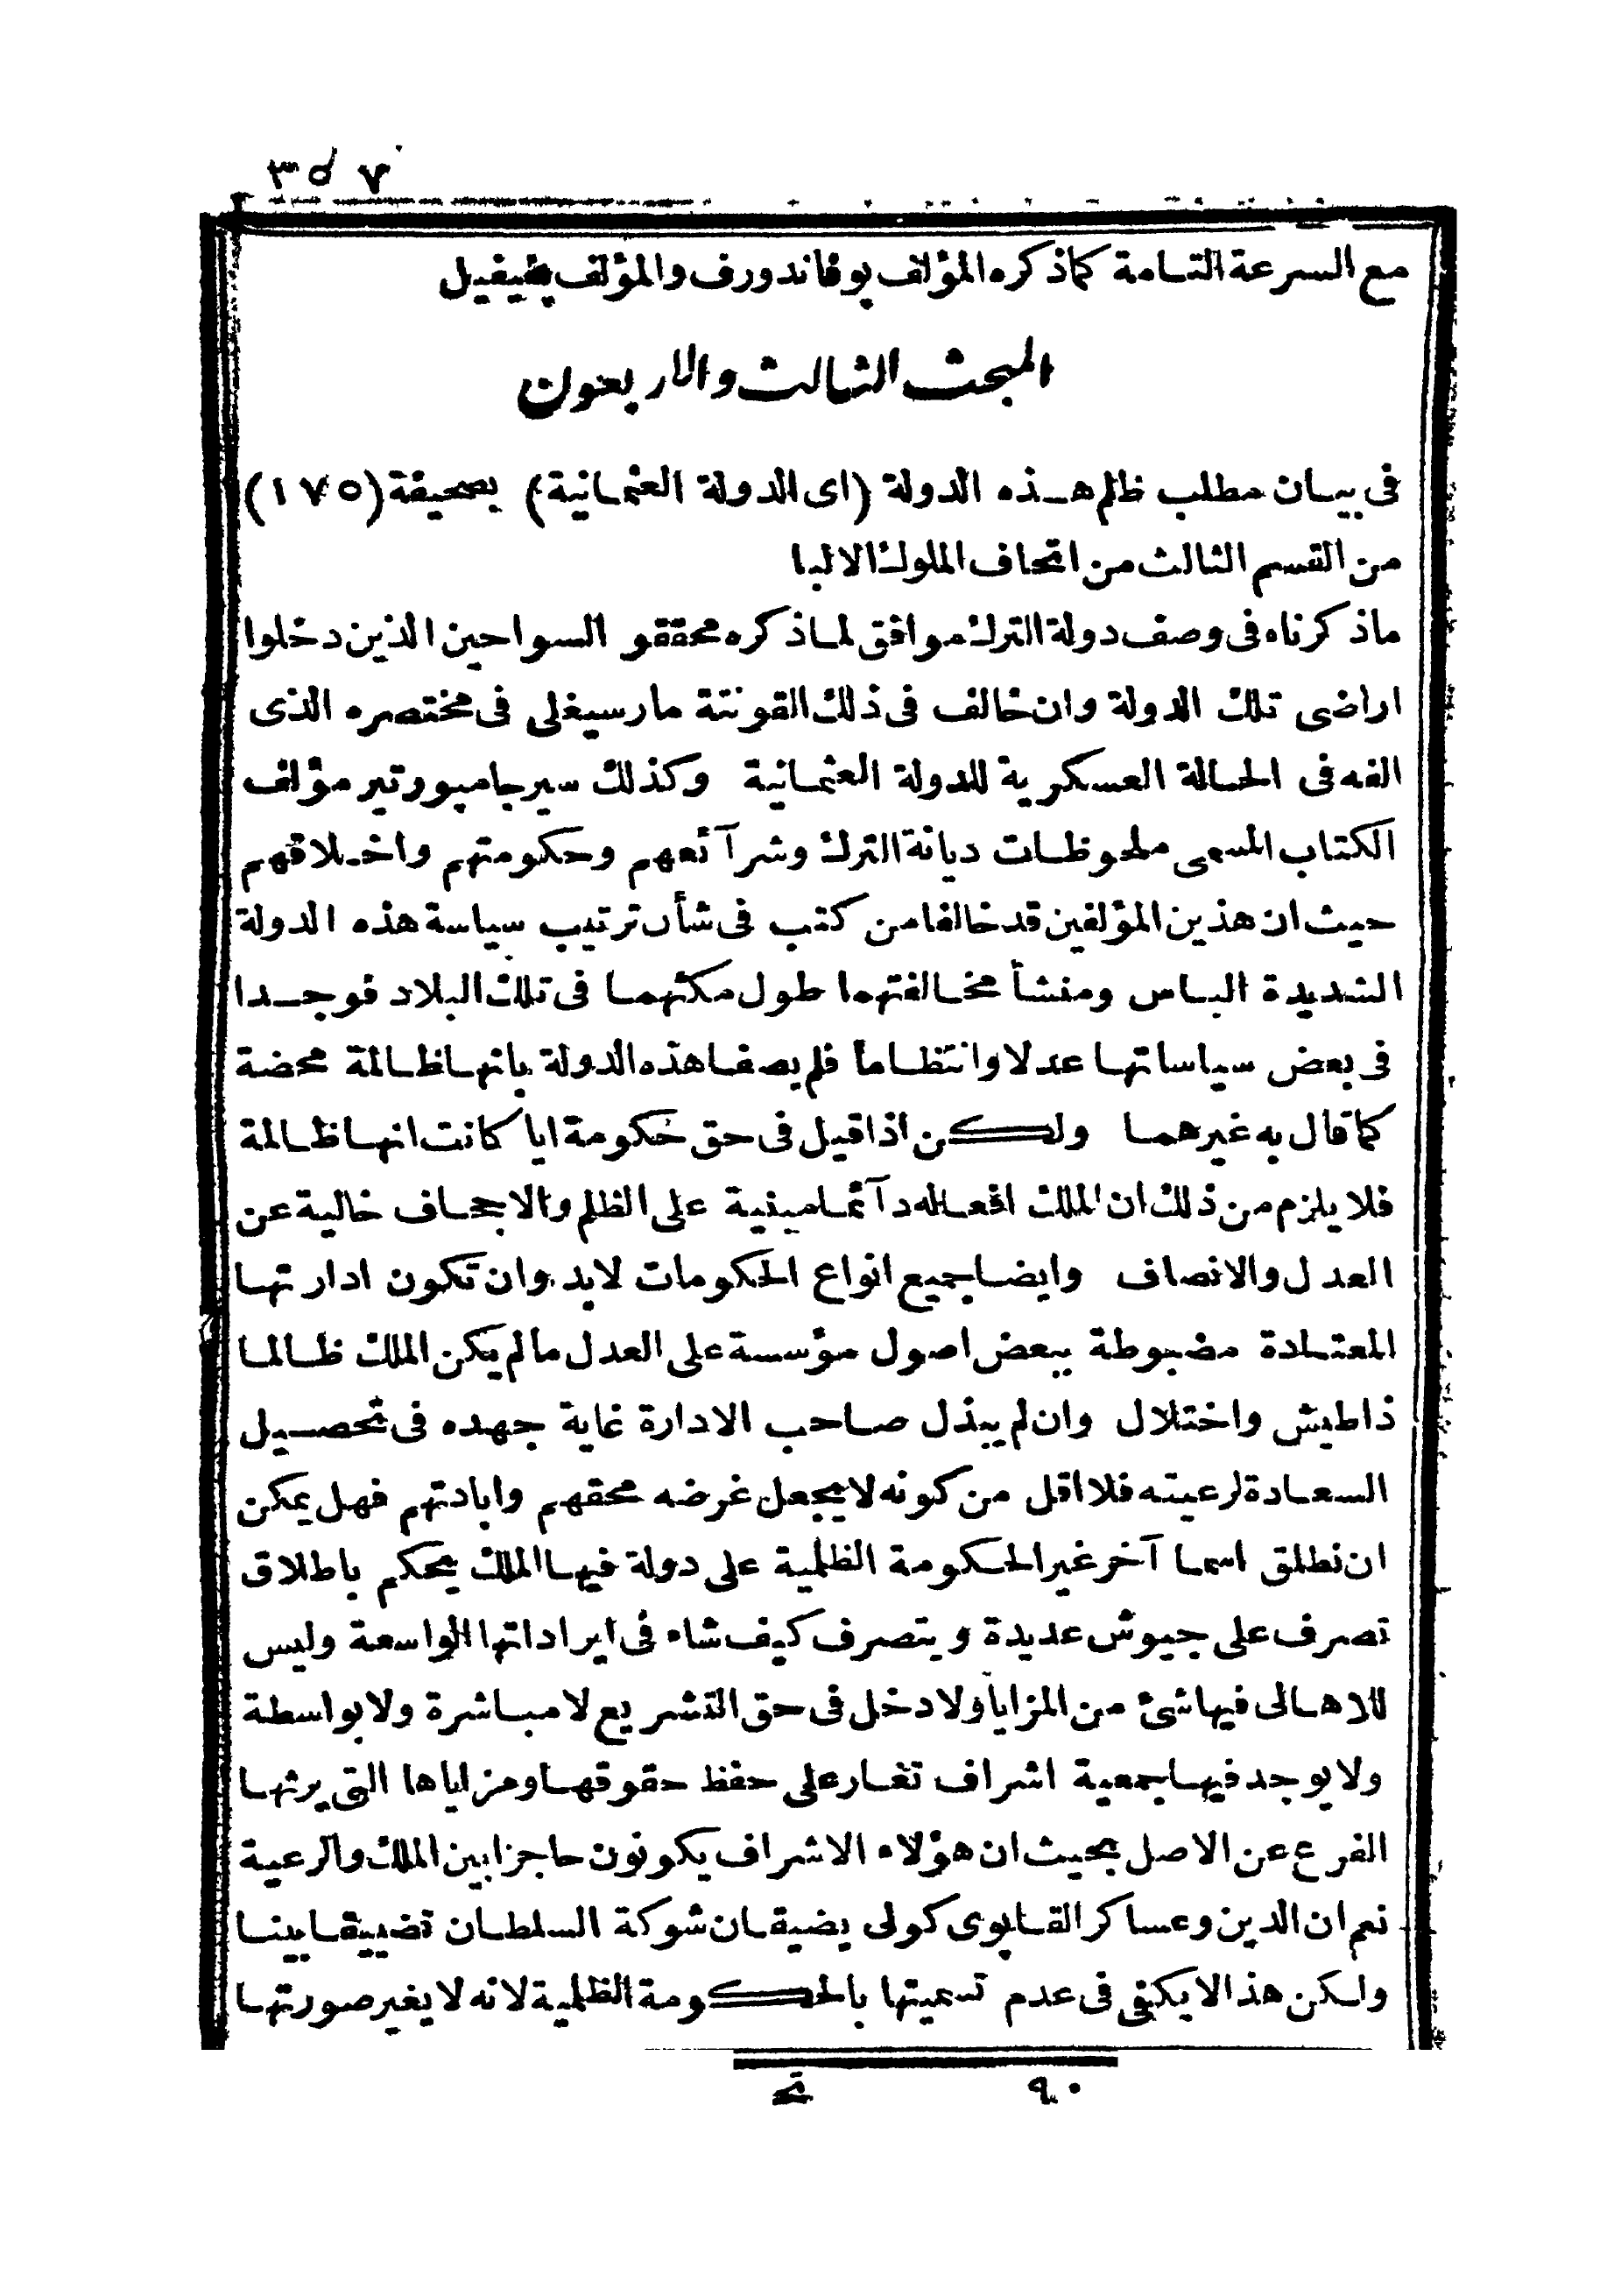 ٣٥٧
مع السرعة التامة كماذكره المؤلف پوفاندورف والمؤلف پفيفيل
المبحث الثالث والاربعون
فى بيان مطلب ظلم هذه الدولة (اى الدولة العثمانية) بصحيفة (١٧٥)
من القسم الثالث من اتحاف الملوك الالبا
ماذكرناه فى وصف دولة الترك موافق لماذكره محققو السواحين الذين دخلوا
اراضى تلك الدولة وان خالف فى ذلك القونتة مارسيغلى فى مختصره الذى
الفه فى الحالة العسكرية للدولة العثمانية وكذلك سيرجامپورتير مؤلف
الكتاب المسمى ملحوظات ديانة الترك وشرآئعهم وحكومتهم واخلاقهم
حيث ان هذين المؤلفين قد خالفا من كتب فى شأن ترتيب سياسة هذه الدولة
الشديدة الباس ومنشأ مخالفتهما طول مكثهما فى تلك البلاد فوجدا
فى بعض سياساتها عدلا وانتظاما فلم يصفا هذه الدولة بانها ظالمة محضة
كماقال به غيرهما ولكن اذاقيل فى حق حكومة ايا كانت انها ظالمة
فلا يلزم من ذلك ان الملك افعاله دآئما مبنية على الظلم والاجحاف خالية عن
العدل والانصاف وايضا جميع انواع الحكومات لابد وان تكون ادارتها
المعتادة مضبوطة ببعض اصول مؤسسة على العدل مالم يكن الملك ظالما
ذاطيش واختلال وان لم يبذل صاحب الادارة غاية جهده فى تحصيل
السعادة لرعيته فلا اقل من كونه لايجعل غرضه محقهم وابادتهم فهل يمكن
ان نطلق اسما آخر غير الحكومة الظلمية على دولة فيها الملك يحكم باطلاق
تصرف على جيوش عديدة ويتصرف كيف شاء فى ايراداتها الواسعة وليس
للاهالى فيها شئ من المزايا ولا دخل فى حق التشريع لا مباشرة ولا بواسطة
ولا يوجد فيها جمعية اشراف تغار على حفظ حقوقها ومزاياها التى يرثها
الفرع عن الاصل بحيث ان هؤلاء الاشراف يكونون حاجزا بين الملك والرعية
نعم ان الدين وعساكر القاپوى كولى يضيقان شوكة السلطان تضييقا بينا
ولكن هذا لا يكفى فى عدم تسميتها بالحكومة الظلمية لانه لا يغير صورتها
٩٠ تح